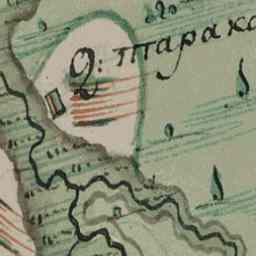 Д: тарака